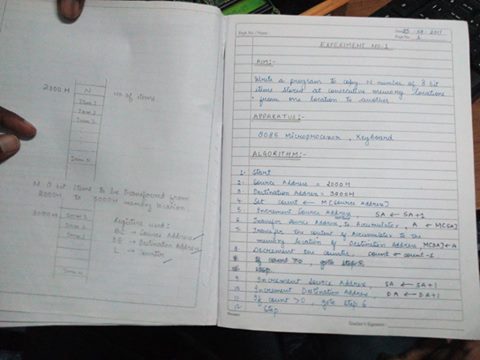 2000H
N
no. of items
Item 1
Item 2
Item 3
Item N
N 8 bit items to be transferred from
2000H to 3000H memory location
3000H
Item 1
Item 2
Item 3
Registers used:
BC → Source Address
DE → Destination Address
L → Counter
Page No.
Date 2017
Page No. 1
EXPERIMENT NO. 1
AIM:-
Write a program to copy N number of 8 bit
items stored at consecutive memory locations
from one location to another
APPARATUS:-
8085 Microprocessor, Keyboard
ALGORITHM:-
1. Start
2. Source Address = 2000H
3. Destination Address = 3000H
4. Set count ← M[Source Address]
5. Increment Source Address SA ← SA+1
6. Transfer Source Address to Accumulator, A ← M[SA]
7. Transfer the content of Accumulator to the
memory location of Destination Address, M[DA] ← A
8. Decrement the counter, count ← count-1
If count >0, goto step
Stop
9. Increment Source Address, SA ← SA+1
10. Increment Destination Address DA ← DA+1
11. If count >0, goto Step 6
12. Stop
Teacher's Signature